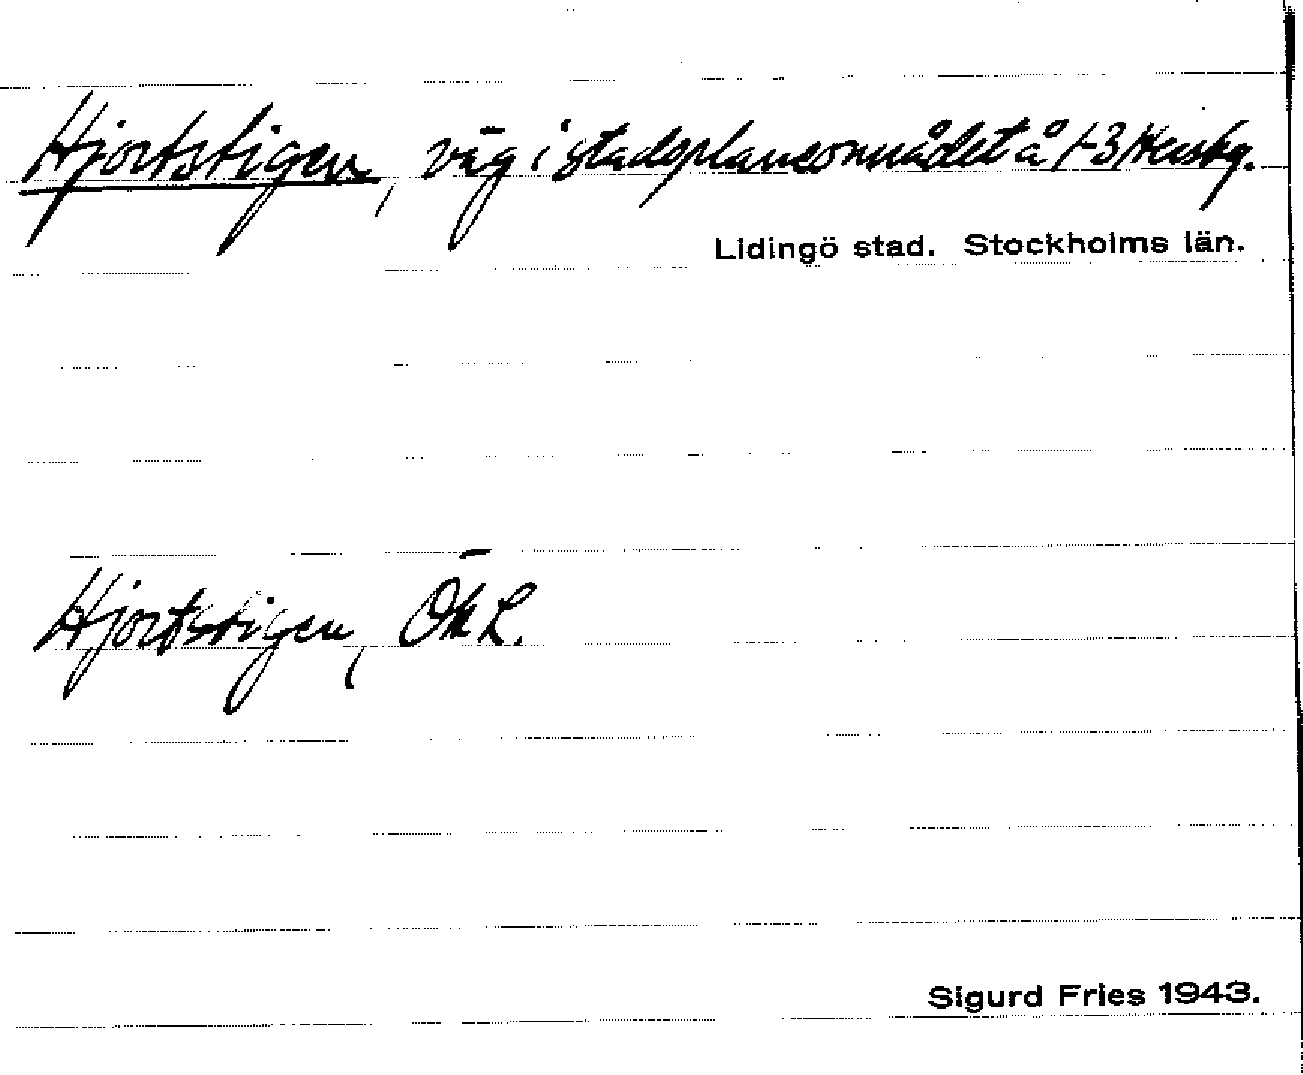 Hjortstigen, väg i stadsplaneområdet å 1-3/Hersbg.
Lidingö stad. Stockholms län.
Hjortstigen, ÖKL.
Sigurd Fries 1943.